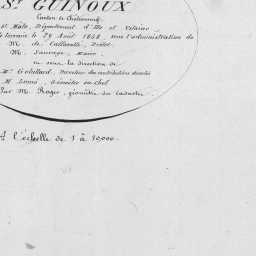 ST GUINOUX
Canton de Châteauneuf
St Malo, Département d'Ille et Vilaine,
le terrain le 29 Août 18, sous l'administration de
M. de Caffarelli, Préfet
M. Sauvage, Maire,
et sous la direction de
Mr. Gobillard, Directeur des contributions directes
M. Lenné, Géomètre en chef
Par M. Roger, géomètre du cadastre.
A l'échelle de 1 à 10,000.